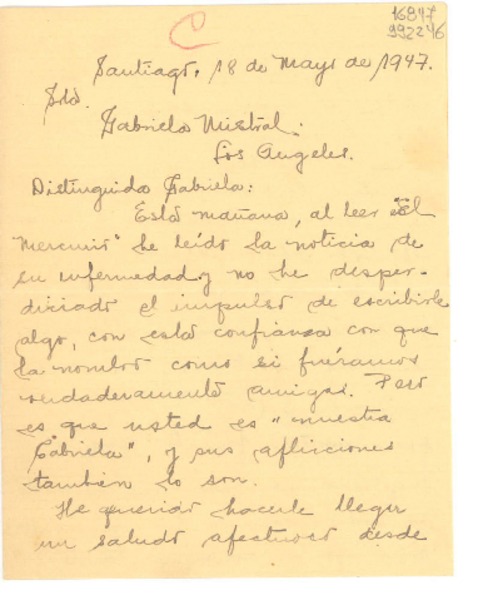 16847
992246
C
Santiago, 18 de Mayo de 1947.
Srta.
Gabriela Mistral:
Los Angeles.
Distinguida Gabriela:
Esta mañana, al leer "El
Mercurio" he leído la noticia de
su enfermedad y no he desper-
diciado el impulso de escribirle
algo, con esta confianza con que
la nombro como si fuéramos
verdaderamente amigas. Pero
es que usted es "nuestra
Gabriela", y sus aflicciones
también lo son.
He querido hacerle llegar
un saludo afectuoso desde